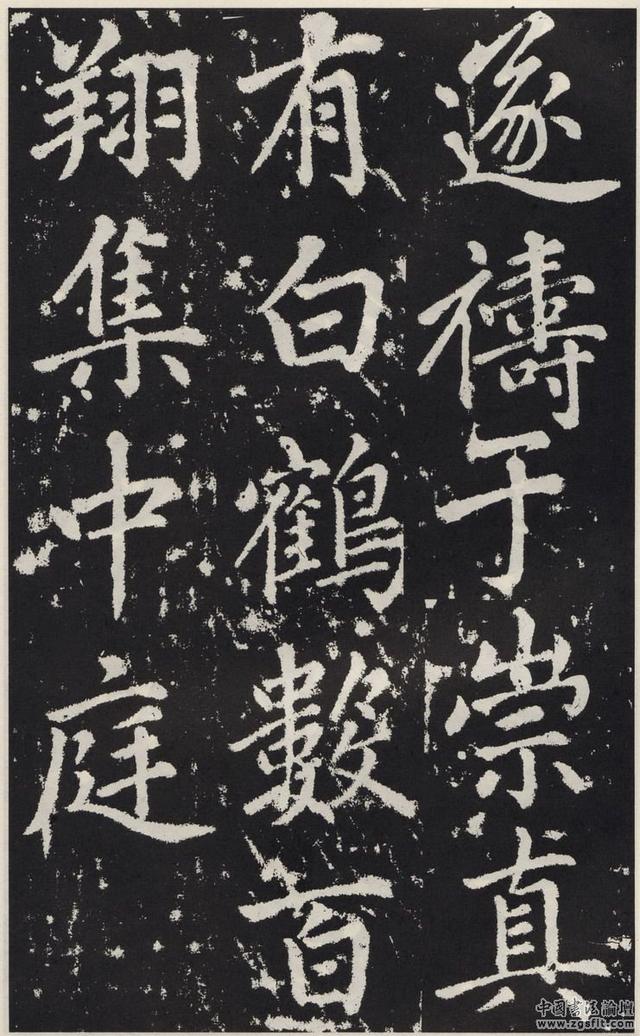 遂禱于崇真
有白鶴數百
翔集中庭
中国书法论坛
www.zgsflt.com